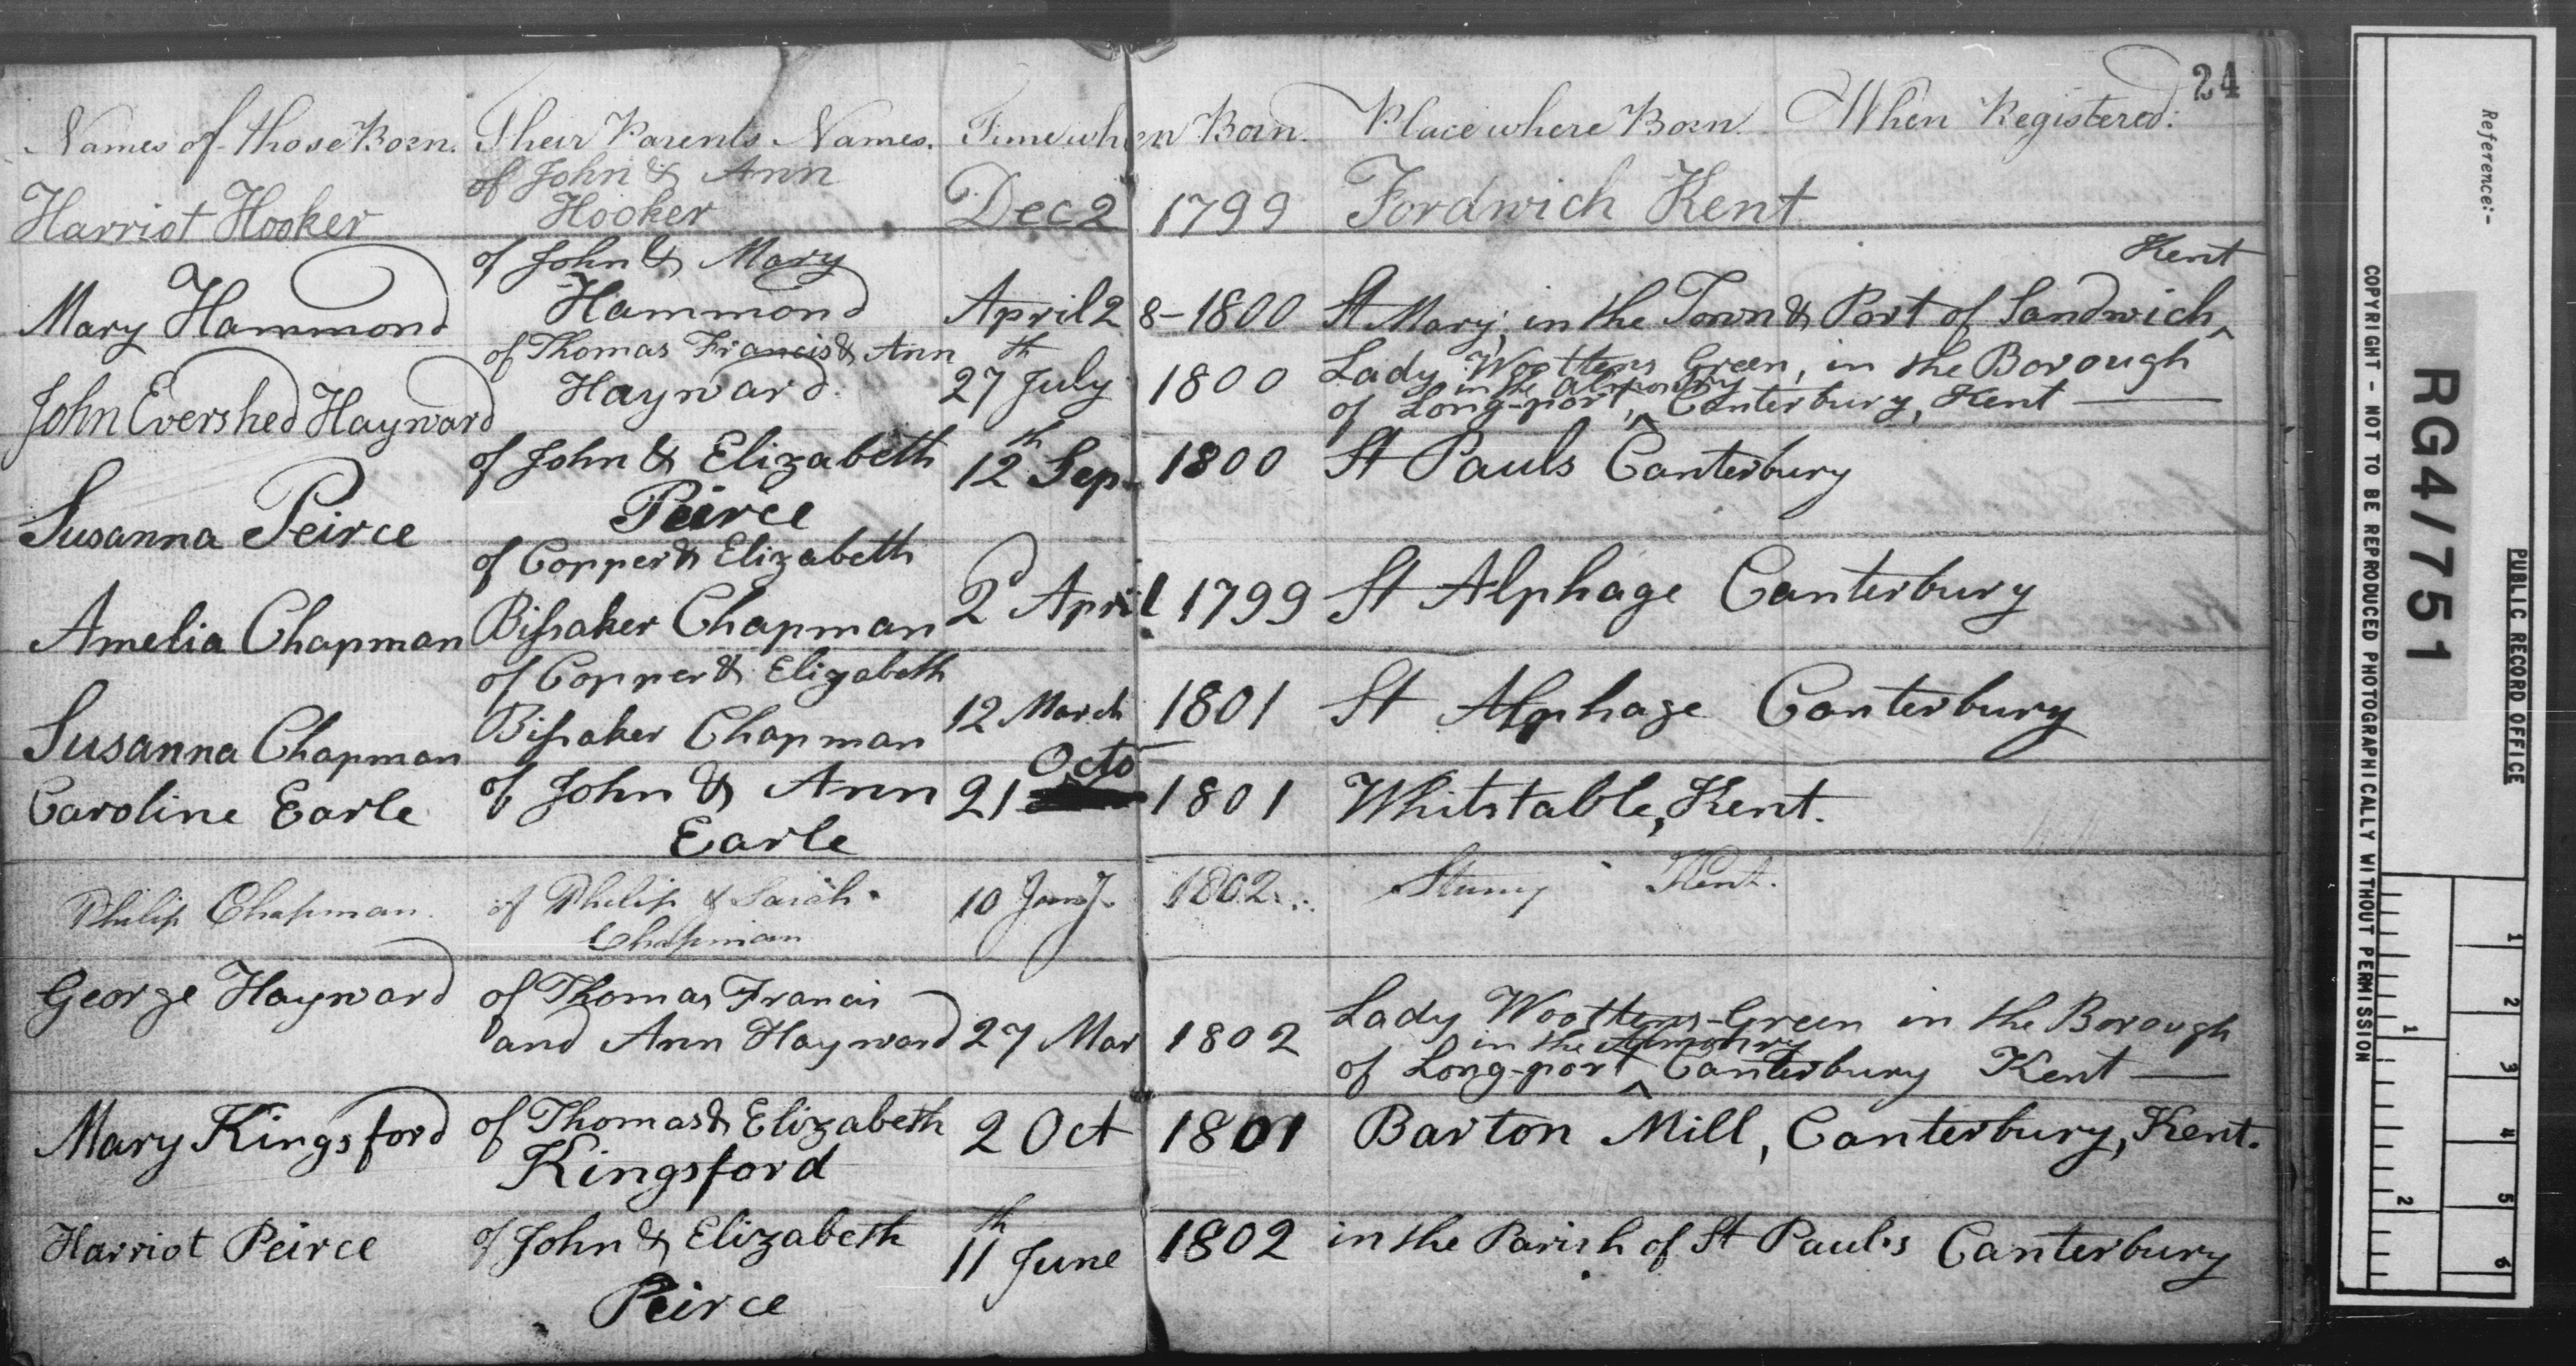 24
Names of those Born. Their Parents Names. Time when Born. Place where Born. When Registered.
of John & Ann
Harriot Hooker Hooker Dec 2 1799 Fordwich Kent
of John & Mary Kent
Mary Hammond Hammond April 28 - 1800 St Mary, in the Town & Port of Sandwich ^
of Thomas Francis & Ann Lady Woottens Green, in the Borough
John Evershed Hayward Hayward. 27th July 1800 in the Almonry
of Long-port, ^ Canterbury, Kent —
of John & Elizabeth 12th Sep. 1800 St Pauls Canterbury
Susanna Peirce Peirce
of Copper & Elizabeth
Amelia Chapman Bissaker Chapman 2d April 1799 St Alphage Canterbury
of Copper & Elizabeth
Susanna Chapman Bissaker Chapman 12 March 1801 St Alphage Canterbury
Octo
Caroline Earle of John & Ann 21 1801 Whitstable, Kent.
Earle
Philip Chapman. of Philip & Sarah 10 Jany. 1802 Kent.
Chapman
George Hayward of Thomas Francis Lady Woottens-Green in the Borough
and Ann Hayward 27 Mar 1802 in the Almonry
of Long-port ^ Canterbury Kent —
Mary Kingsford of Thomas & Elizabeth 2 Oct 1801 Barton Mill, Canterbury, Kent.
Kingsford
Harriot Peirce of John & Elizabeth 11th June 1802 in the Parish of St Pauls Canterbury
Peirce
PUBLIC RECORD OFFICE
Reference:-
RG4/751
COPYRIGHT - NOT TO BE REPRODUCED PHOTOGRAPHICALLY WITHOUT PERMISSION
1 2 3 4 5 6
1 2